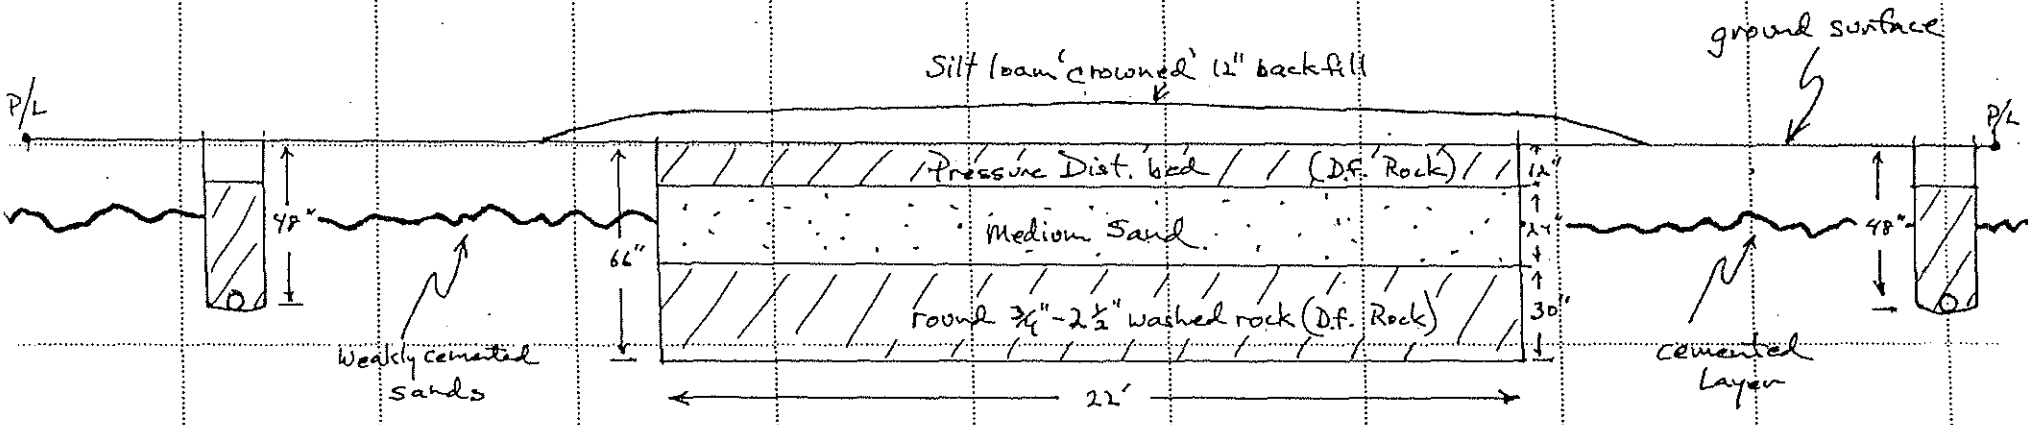 ground surface
Silt loam 'crowned' 12" backfill
P/L
P/L
Pressure Dist. bed (D.f. Rock)
12"
48"
Medium Sand
24"
48"
66"
round 3/4"-2 1/2" washed rock (D.f. Rock)
30"
Weakly cemented
sands
cemented
Layer
22'